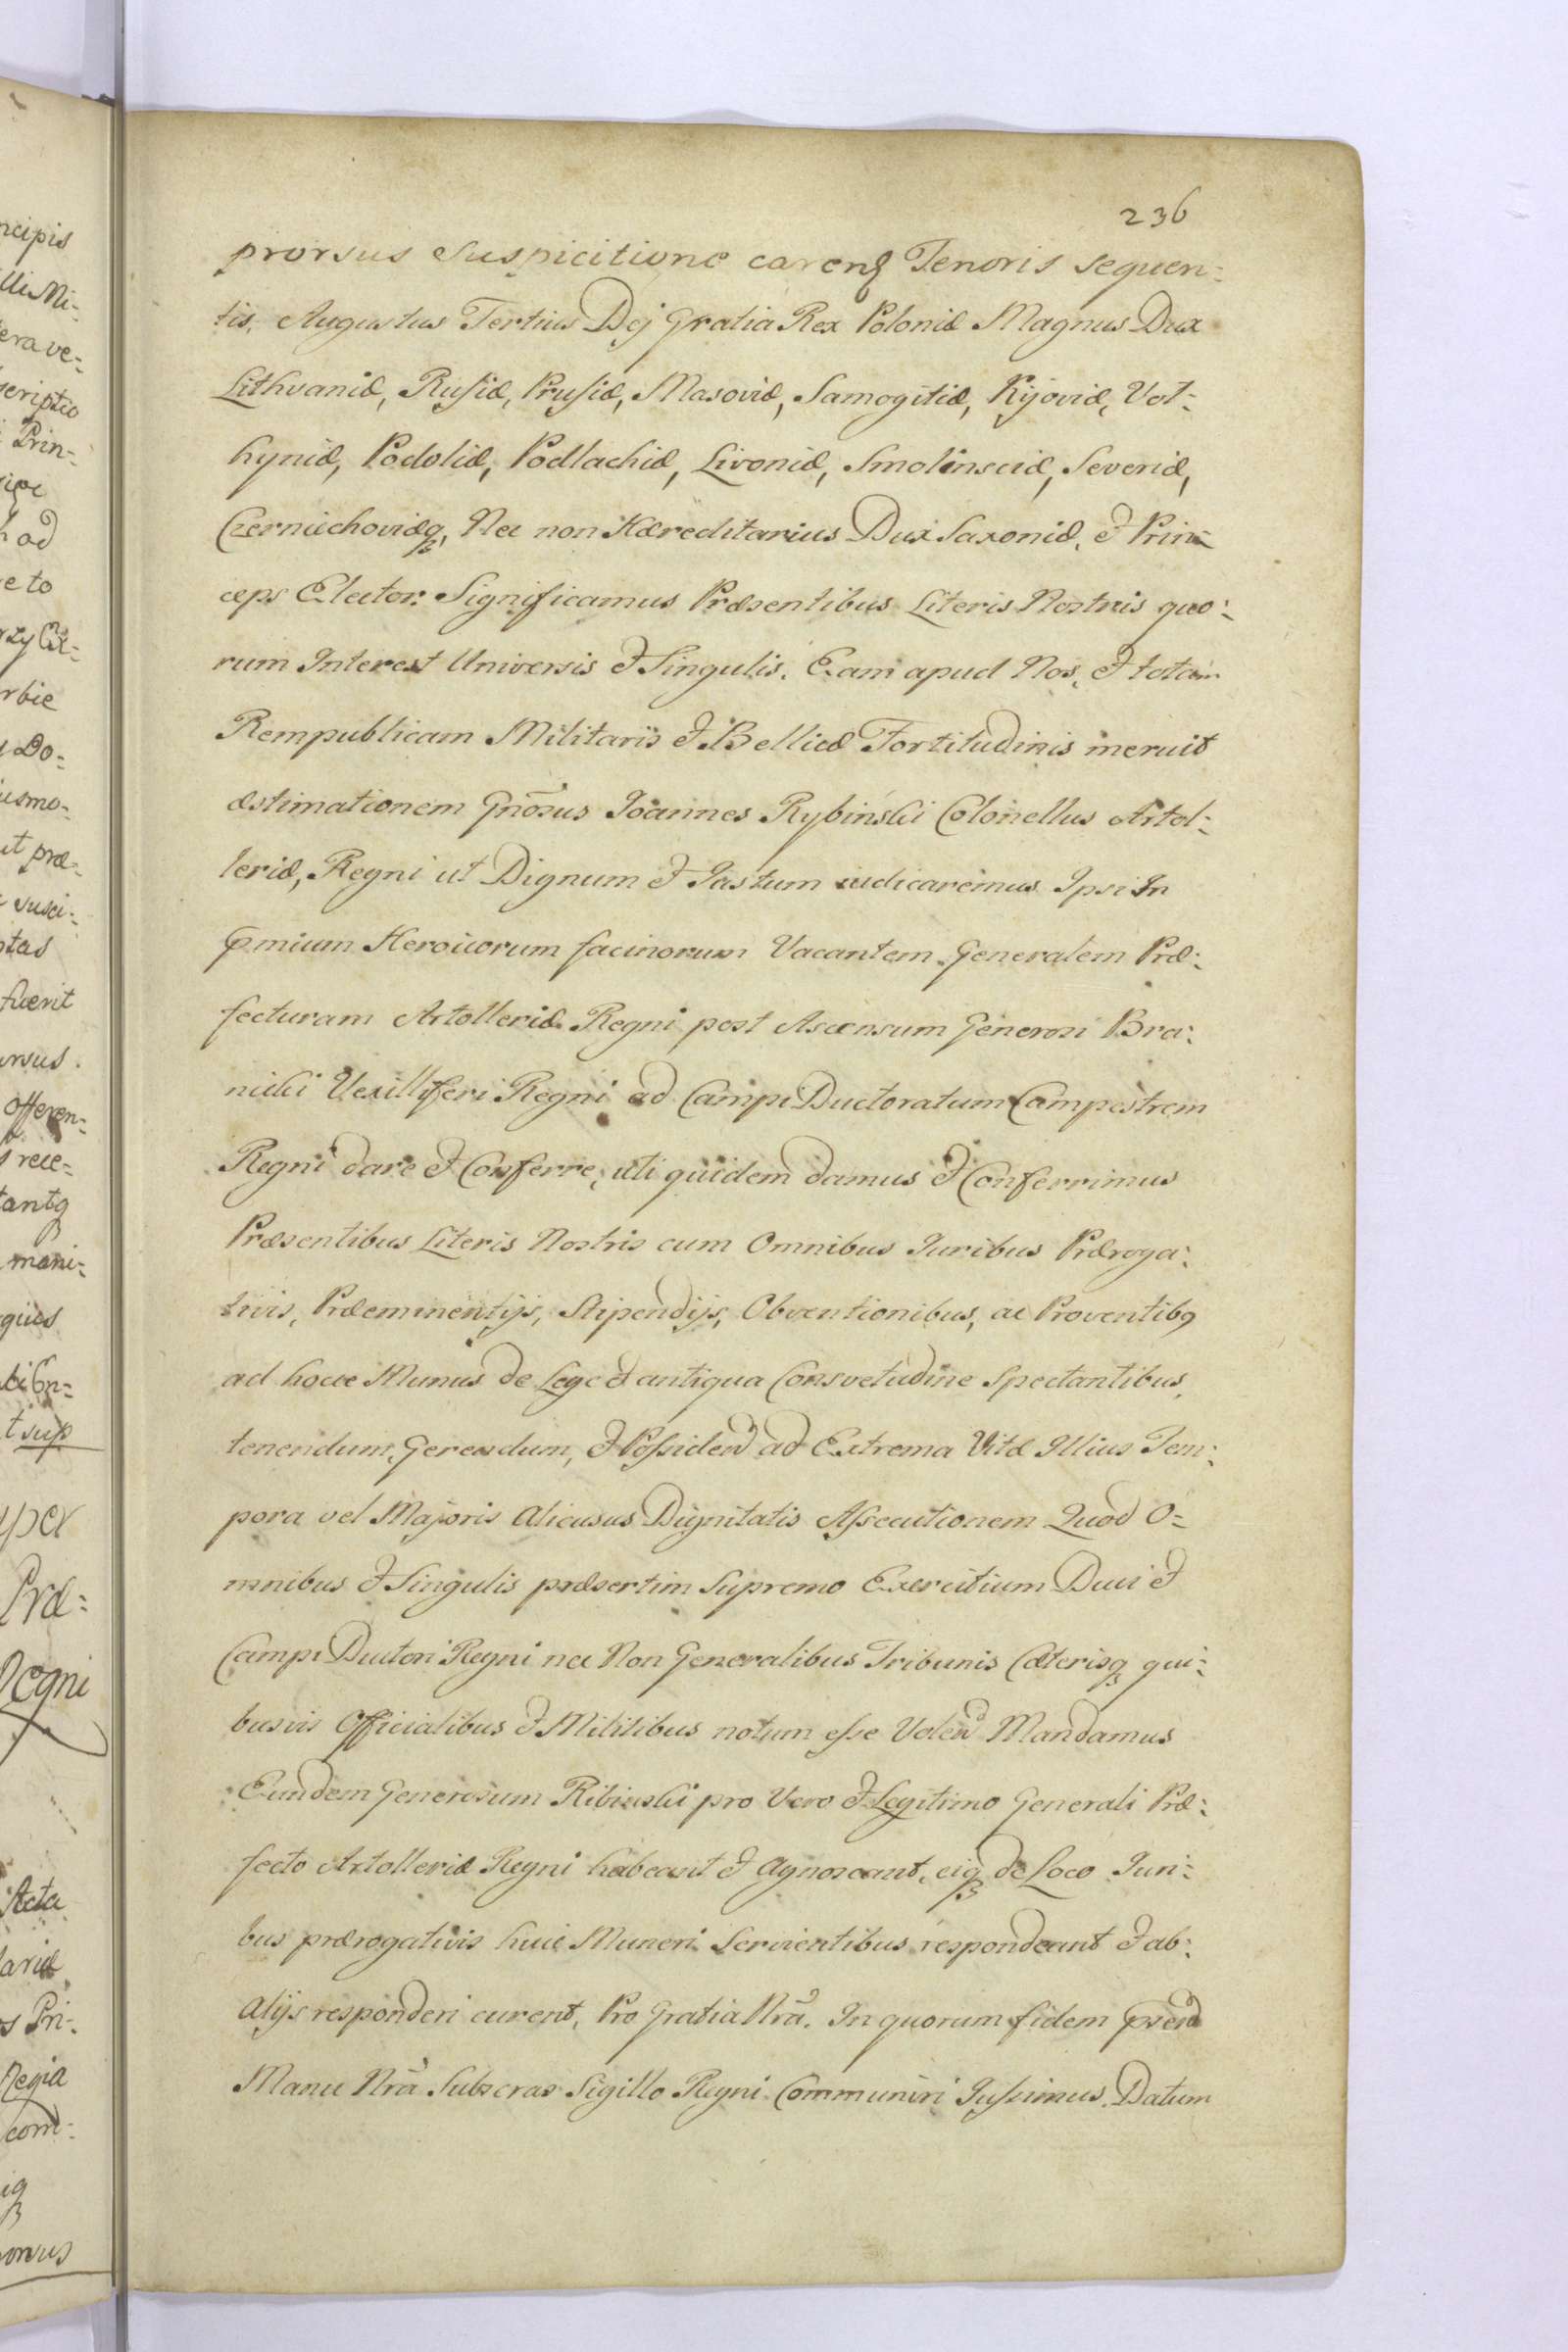 236
prorsus Suspicitione carenẟ Tenoris sequen:
tis. Augustus Tertius Dej Gratia Rex Poloniæ Magnus Dux
Lithvaniæ, Rusiæ, Prusiæ, Masoviæ, Samogitiæ, Kijoviæ, Vol:
hyniæ, Podoliæ, Podlachiæ, Livoniæ, Smolinsciæ, Severiæ,
Czerniechoviæq, Nec non Hæreditarius Dux Saxoniæ, et Prin:
ceps Elector. Significamus Præsentibus Literis Nostris quo:
rum Interest Universis et Singulis. Eam apud Nos, et totam
Rempublicam Militaris et Bellicæ Fortitudinis meruit
æstimationem Gnōsus Joannes Rybinski Colonellus Artol:
leriæ, Regni ut Dignum et Justum iudicaremus Ipsi In
Pmium Heroicorum facinorum Vacantem Generalem Præ:
fecturam Artolleriæ Regni post Ascensum Generosi Bra:
nicki Vexilliferi Regni ad Campi Ductoratum Campestrem
Regni dare et Conferre, uti quidem damus et Conferrimus
Præsentibus Literis Nostris cum Omnibus Juribus Præroga:
tivis, Præeminentijs, Stipendijs, Obventionibus, ac Proventibꝯ
ad hocce Munus de Lege et antiqua Consvetudine Spectantibus,
tenendum, Gerendum, et Possidend ad Extrema Vitæ Illius Tem:
pora vel Majoris alicusus Dignitatis Assecutionem Quod O=
mnibus et Singulis præsertim Supremo Exercitium Duci et
Campi Ductori Regni nec Non Generalibus Tribunis Cæterisq qui:
busvis Officialibus et Militibus notum esse Volend Mandamus
Eundem Generosum Ribinski pro Vero et Legitimo Generali Præ:
fecto Artolleriæ Regni habeant et agnoscant, eiq de Loco Juri:
bus prærogativis huic Muneri Servientibus respondeant et ab:
alijs responderi curent, Pro Gratia Nrā. In quorum fidem Psend
Manu Nrā Subscras Sigillo Regni Communiri Jussimus. Datum